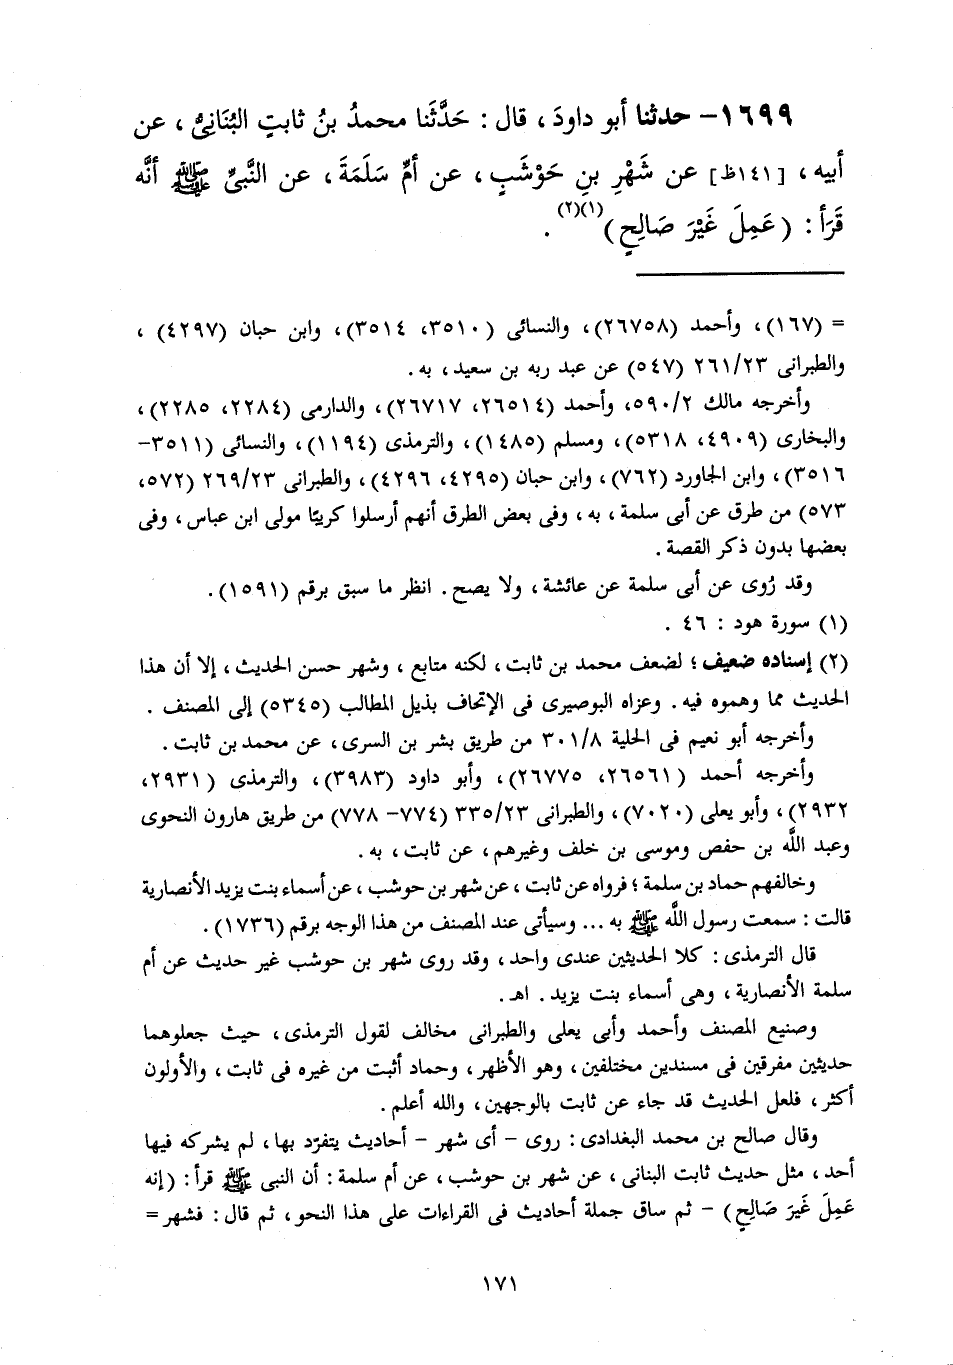 ١٦٩٩- حدثنا أبو داودَ ، قال : حَدَّثَنا محمدُ بنُ ثابتٍ البُنَانِىُّ ، عن
أبيه ، [١٤١ظ] عن شَهْرِ بنِ حَوْشَبٍ ، عن أمِّ سَلَمَةَ ، عن النَّبىِّ ﷺ أنَّه
قَرَأ : (عَمِلَ غَيْرَ صَالِحٍ)(١)(٢) .
= (١٦٧)، وأحمد (٢٦٧٥٨)، والنسائى (٣٥١٠، ٣٥١٤)، وابن حبان (٤٢٩٧) ،
والطبرانى ٢٦١/٢٣ (٥٤٧) عن عبد ربه بن سعيد ، به .
وأخرجه مالك ٥٩٠/٢، وأحمد (٢٦٥١٤، ٢٦٧١٧)، والدارمى (٢٢٨٤، ٢٢٨٥) ،
والبخارى (٤٩٠٩، ٥٣١٨)، ومسلم (١٤٨٥)، والترمذى (١١٩٤)، والنسائى (٣٥١١-
٣٥١٦)، وابن الجاورد (٧٦٢)، وابن حبان (٤٢٩٥، ٤٢٩٦)، والطبرانى ٢٦٩/٢٣ (٥٧٢،
٥٧٣) من طرق عن أبى سلمة ، به ، وفى بعض الطرق أنهم أرسلوا كريبًا مولى ابن عباس ، وفى
بعضها بدون ذكر القصة .
وقد رُوى عن أبى سلمة عن عائشة ، ولا يصح . انظر ما سبق برقم (١٥٩١) .
(١) سورة هود : ٤٦ .
(٢) إسناده ضعيف ؛ لضعف محمد بن ثابت ، لكنه متابع ، وشهر حسن الحديث ، إلا أن هذا
الحديث مما وهموه فيه . وعزاه البوصيرى فى الإتحاف بذيل المطالب (٥٣٤٥) إلى المصنف .
وأخرجه أبو نعيم فى الحلية ٣٠١/٨ من طريق بشر بن السرى ، عن محمد بن ثابت .
وأخرجه أحمد (٢٦٥٦١، ٢٦٧٧٥)، وأبو داود (٣٩٨٣)، والترمذى (٢٩٣١،
٢٩٣٢)، وأبو يعلى (٧٠٢٠)، والطبرانى ٣٣٥/٢٣ (٧٧٤- ٧٧٨) من طريق هارون النحوى
وعبد اللَّه بن حفص وموسى بن خلف وغيرهم ، عن ثابت ، به .
وخالفهم حماد بن سلمة ؛ فرواه عن ثابت ، عن شهر بن حوشب ، عن أسماء بنت يزيد الأنصارية
قالت : سمعت رسول اللَّه ﷺ به ... وسيأتى عند المصنف من هذا الوجه برقم (١٧٣٦) .
قال الترمذى : كلا الحديثين عندى واحد ، وقد روى شهر بن حوشب غير حديث عن أم
سلمة الأنصارية ، وهى أسماء بنت يزيد . اهـ .
وصنيع المصنف وأحمد وأبى يعلى والطبرانى مخالف لقول الترمذى ، حيث جعلوهما
حديثين مفرقين فى مسندين مختلفين ، وهو الأظهر ، وحماد أثبت من غيره فى ثابت ، والأولون
أكثر ، فلعل الحديث قد جاء عن ثابت بالوجهين ، والله أعلم .
وقال صالح بن محمد البغدادى : روى - أى شهر - أحاديث يتفرّد بها ، لم يشركه فيها
أحد ، مثل حديث ثابت البنانى ، عن شهر بن حوشب ، عن أم سلمة : أن النبى ﷺ قرأ : (إنه
عَمِلَ غَيرَ صَالِحٍ) - ثم ساق جملة أحاديث فى القراءات على هذا النحو ، ثم قال : فشهر =
١٧١